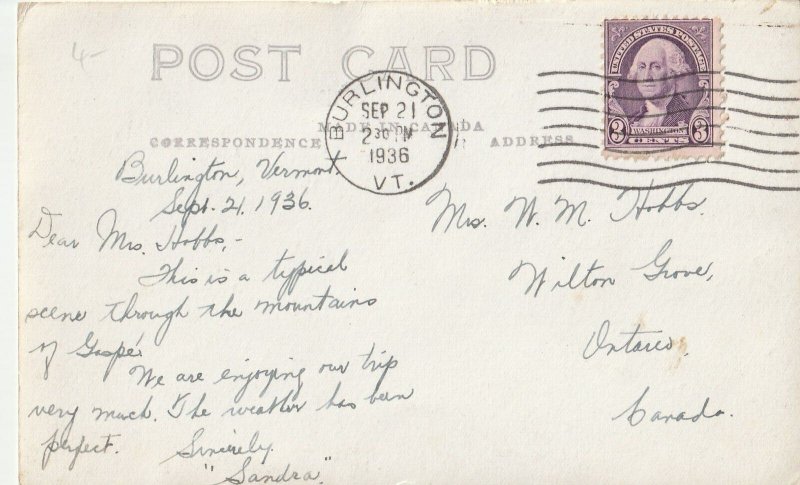 4-
POST CARD
MADE IN CANADA
CORRESPONDENCE ADDRESS
BURLINGTON
SEP 21
2 30 PM
1936
VT.
UNITED STATES POSTAGE
3 WASHINGTON 3
CENTS
Burlington, Vermont.
Sept. 21, 1936.
Dear Mrs. Hobbs,-
This is a typical
scene through the mountains
of Gaspé.
We are enjoying our trip
very much. The weather has been
perfect. Sincerely
"Sandra"
Mrs. W. M. Hobbs.
Wilton Grove,
Ontario.
Canada.